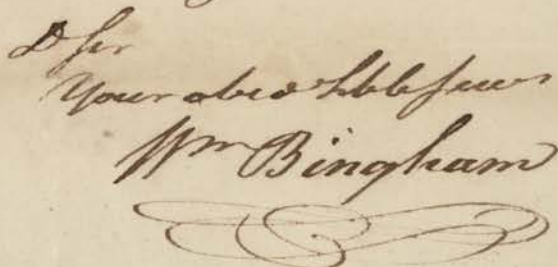 D Sir
Your obed Hble Serv
Wm Bingham